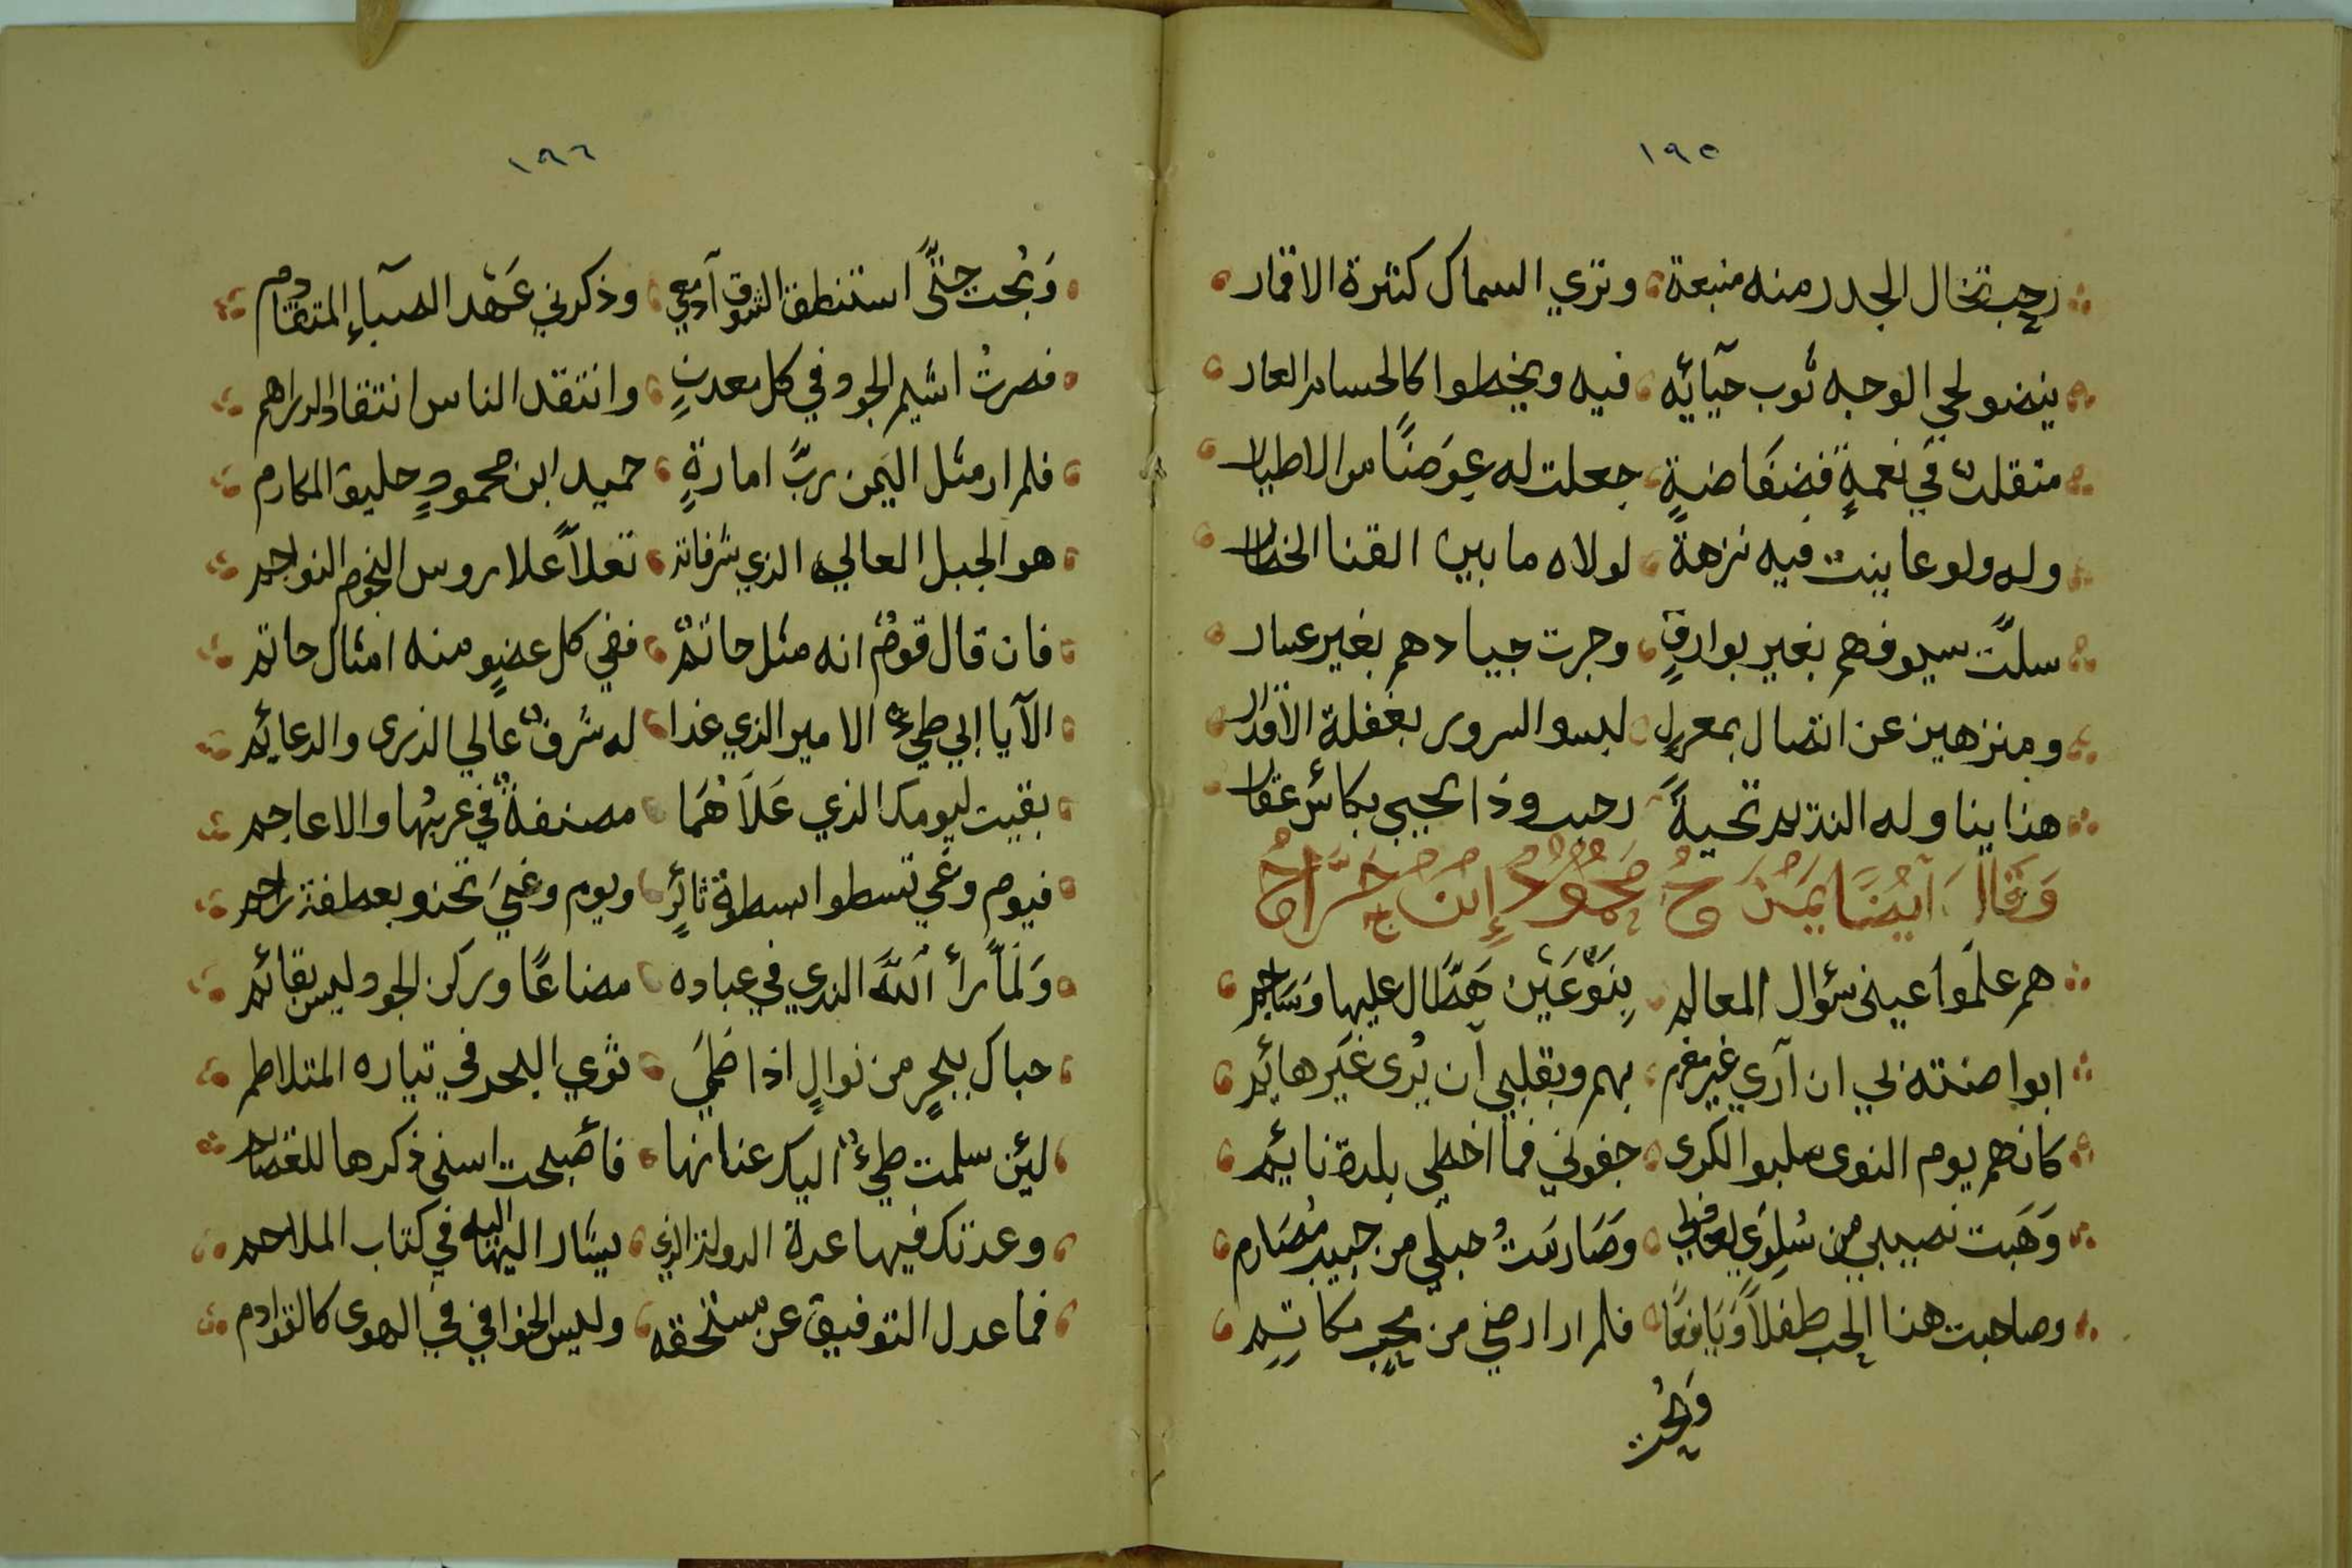 ١٩٥
رحب تخال الجدر منه منبعة وتري السماك كنثرة الاقمار
ينضو لحي الوجه ثوب حيآئه فيه ويخطوا كالحسام العار
متقلدٌ في نعمةٍ فضفاضةٍ جعلت له عوضًا من الاطيار
وله ولو عاينت فيه نزهةً لولاه ما بين القنا الخطار
سلّت سيوفهم بغير بوارقٍ وجرت جيادهم بغير عبار
ومنزهين عن اتصال بمعرلٍ لبسوا السرور بغفلة الأقدار
هذا يناوله النديم تحيةً رحب وذا يحيي بكائس عقار
وَقَالَ آيضًا يَمْدَحُ مَحمُودُ إبن جَرَّاحُ
هم علّموا عيني سؤال المعالم بنوعَيْن هَطَّال عليها وَسَاجم
ابوا ضنته لي ان آري غير مغرم بهم وبقلبي آن يُرى غَير هائم
كانهم يوم النوى سلبوا الكرى جفوني فما اخطي بلدة نائم
وَهَبت نصيبي من سُلوي لعاذلي وصَارمَتُ حبلي من حبيب مُصَارم
وصاحبت هذا الحب طفلاً وَيَافعًا فلم ار ارضي من محبٍ مكاتم
وَبُحت
١٩٦
وَبُحت حتّى استنطق الشوق آدمعي وذكرني عَهْد الصبآءِ المتقادم
فصرتُ اشيم الجود في كل معدنٍ وانتقد الناس انتقاد الدراهم
فلم ار مثل اليَمن ربَّ امارةٍ حميد ابن محمودٍ حليق المكارم
هو الجبل العالي الذي شرفاته تعلاً علا روس النجوم النواجم
فان قال قومٌ انه مثل حاتمٌ ففي كل عضوٍ منه امثال حاتم
الآيا ابي طيءٌ الامير الذي غدا له شرفٌ عالي الذرى والدعائم
بقيت ليومك الذي عَلاَهُمَا مصنفةٌ في عربُها والاعاجم
فيوم وغي تسطوا سطوة ثائرٍ ويوم وغيَ تحنو بعطفة راحم
وَلَمَّا رأ اللَّه الندي في عباده مضاعًا وركن الجود ليس بقائم
حباك ببحرٍ من نوالٍ اذا طَمَي ثوي البحر في تياره المتلاطم
لئِن سلمت طيءٌ اليك عنانها فأصبحت اسني ذكرها للتعصام
وعدتك فيها عدة الدولة الذي يشار اليها اليه في كتاب الملاحم
فما عدل التوفيق عن مستحقه وليس الخوافي في الهوى كالقوادم